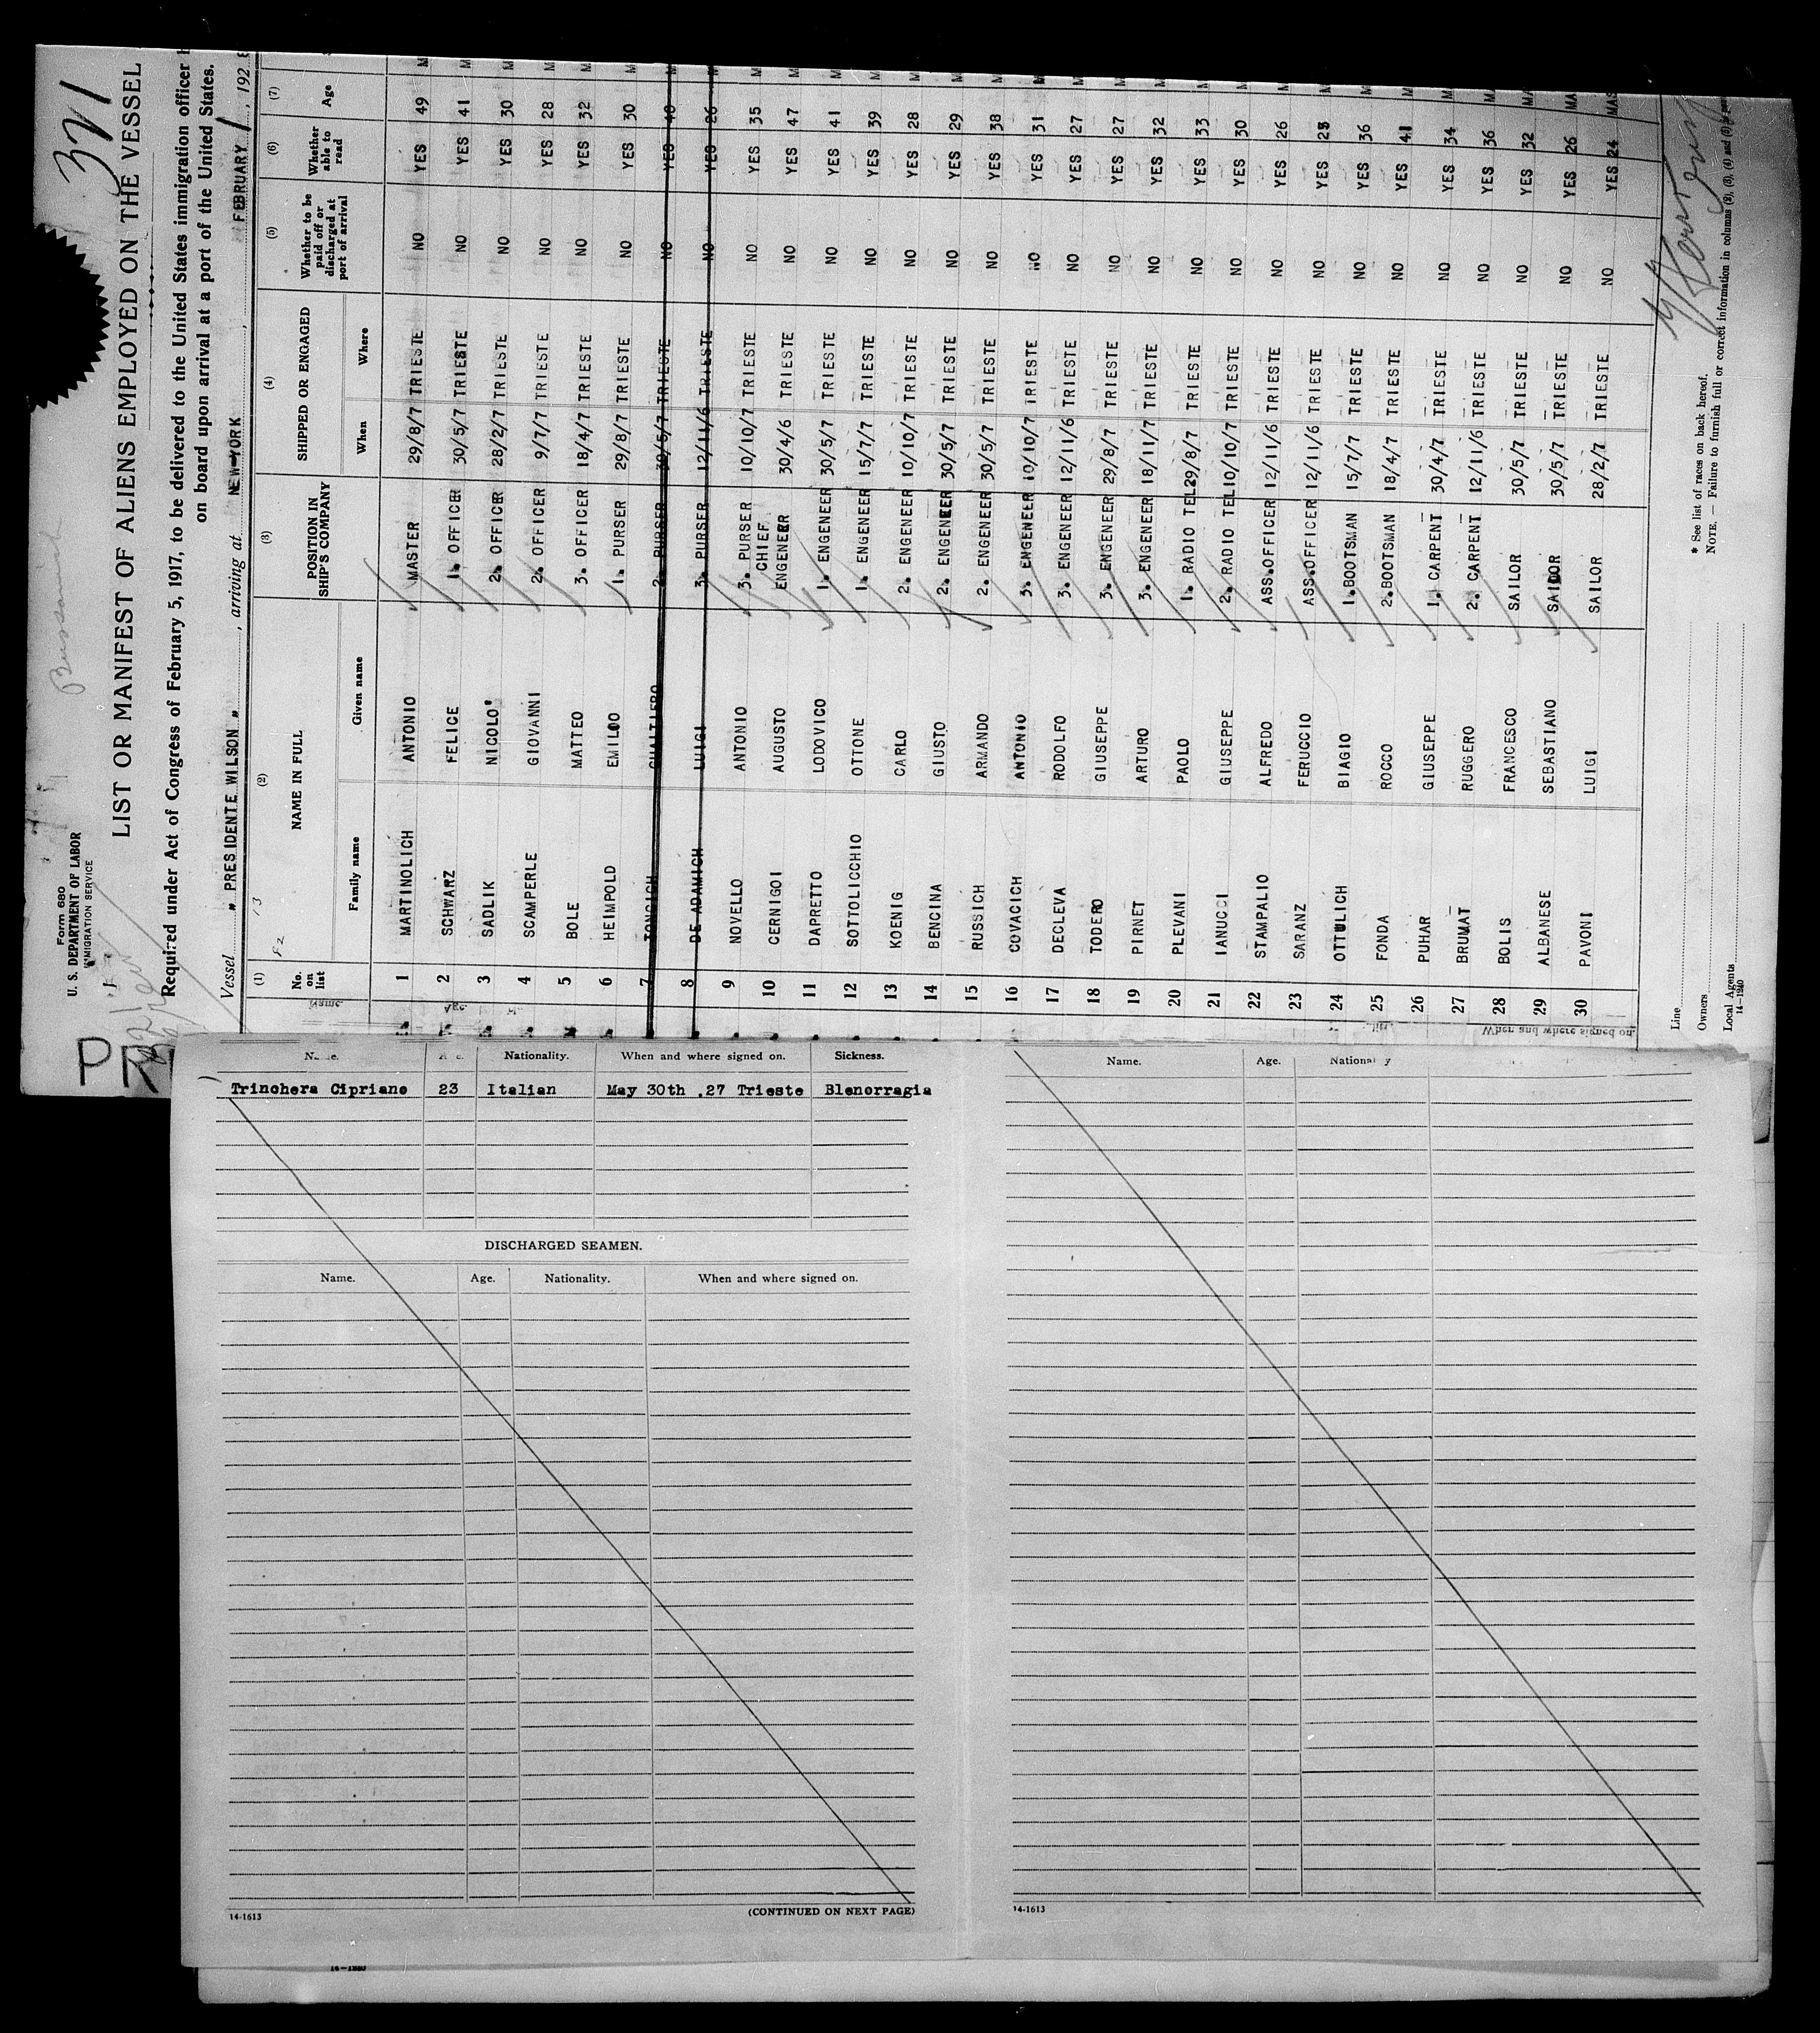 321
Form 680
U. S. DEPARTMENT OF LABOR
IMMIGRATION SERVICE
LIST OR MANIFEST OF ALIENS EMPLOYED ON THE VESSEL
Required under Act of Congress of February 5, 1917, to be delivered to the United States immigration officer
on board upon arrival at a port of the United States.
Vessel " PRESIDENTE WILSON " , arriving at NEW-YORK , FEBRUARY 1 , 192
(1) (2) (3) (4) (5) (6) (7)
No. on list NAME IN FULL POSITION IN SHIP'S COMPANY SHIPPED OR ENGAGED Whether to be paid off or discharged at port of arrival Whether able to read Age
Family name Given name When Where
1 MARTINOLICH ANTONIO MASTER 29/8/7 TRIESTE NO YES 49 M
2 SCHWARZ FELICE 1. OFFICER 30/5/7 TRIESTE NO YES 41 M
3 SADLIK NICOLO' 2. OFFICER 28/2/7 TRIESTE NO YES 30 M
4 SCAMPERLE GIOVANNI 2. OFFICER 9/7/7 TRIESTE NO YES 28 M
5 BOLE MATTEO 3. OFFICER 18/4/7 TRIESTE NO YES 32 M
6 HEIMPOLD EMILIO 1. PURSER 29/8/7 TRIESTE NO YES 30 M
7 TONCICH GUALTIERO 2. PURSER 30/5/7 TRIESTE NO YES 40 M
8 DE ADAMICH LUIGI 3. PURSER 12/11/6 TRIESTE NO YES 26 M
9 NOVELLO ANTONIO 3. PURSER 10/10/7 TRIESTE NO YES 35 M
10 CERNIGOI AUGUSTO CHIEF ENGENEER 30/4/6 TRIESTE NO YES 47 M
11 DAPRETTO LODOVICO 1. ENGENEER 30/5/7 TRIESTE NO YES 41 M
12 SOTTOLICCHIO OTTONE 1. ENGENEER 15/7/7 TRIESTE NO YES 39 M
13 KOENIG CARLO 2. ENGENEER 10/10/7 TRIESTE NO YES 28 M
14 BENCINA GIUSTO 2. ENGENEER 30/5/7 TRIESTE NO YES 29 M
15 RUSSICH ARMANDO 2. ENGENEER 30/5/7 TRIESTE NO YES 38 M
16 COVACICH ANTONIO 3. ENGENEER 10/10/7 TRIESTE NO YES 31 M
17 DECLEVA RODOLFO 3. ENGENEER 12/11/6 TRIESTE NO YES 27 M
18 TODERO GIUSEPPE 3. ENGENEER 29/8/7 TRIESTE NO YES 27 M
19 PIRNET ARTURO 3. ENGENEER 18/11/7 TRIESTE NO YES 32 M
20 PLEVANI PAOLO 1. RADIO TEL 29/8/7 TRIESTE NO YES 33 M
21 IANUCCI GIUSEPPE 2. RADIO TEL 10/10/7 TRIESTE NO YES 30 M
22 STAMPALIO ALFREDO ASS.OFFICER 12/11/6 TRIESTE NO YES 26 M
23 SARANZ FERUCCIO ASS.OFFICER 12/11/6 TRIESTE NO YES 25 M
24 OTTULICH BIAGIO 1.BOOTSMAN 15/7/7 TRIESTE NO YES 36 M
25 FONDA ROCCO 2.BOOTSMAN 18/4/7 TRIESTE NO YES 41 M
26 PUHAR GIUSEPPE 1. CARPENT 30/4/7 TRIESTE NO YES 34 M
27 BRUMAT RUGGERO 2. CARPENT 12/11/6 TRIESTE NO YES 36 MA
28 BOLIS FRANCESCO SAILOR 30/5/7 TRIESTE NO YES 32 MA
29 ALBANESE SEBASTIANO SAILOR 30/5/7 TRIESTE NO YES 26 MA
30 PAVONI LUIGI SAILOR 28/2/7 TRIESTE NO YES 24 MAS
Line
Owners
Local Agents
14-1240
* See list of races on back hereof.
NOTE. — Failure to furnish full or correct information in columns (2), (3), (4) and (5)
When and where signed on.
Name. Age. Nationality. When and where signed on. Sickness.
Trinchera Cipriano 23 Italian May 30th .27 Trieste Blenorragia
DISCHARGED SEAMEN.
Name. Age. Nationality. When and where signed on.
14-1613 (CONTINUED ON NEXT PAGE)
Name. Age. Nationality
14-1613
14-1240